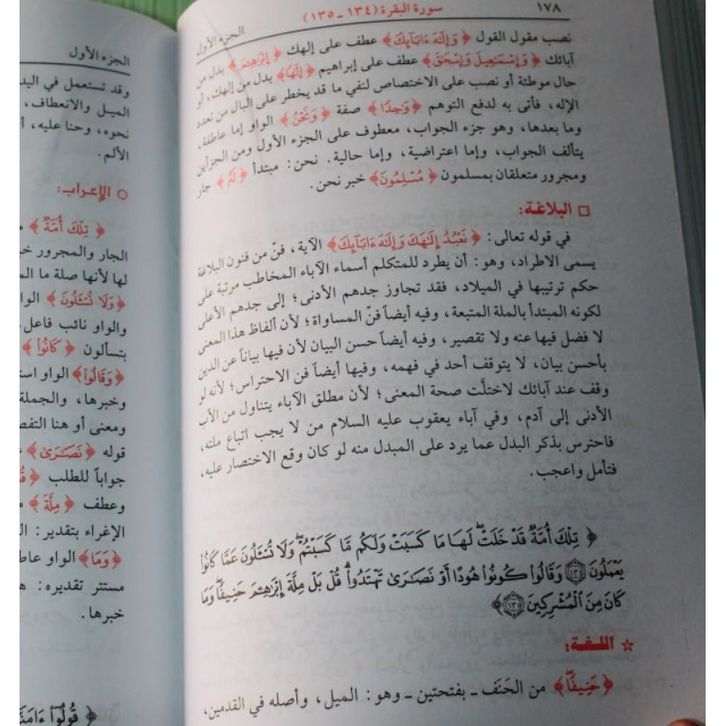 ١٧٨
سورة البقرة (١٣٤ - ١٣٥)
الجزء الأول
نصب مقول القول ﴿وَإِلَٰهَ ءَابَآئِكَ﴾ عطف على إلهك ﴿إِبْرَٰهِـۧمَ﴾ بدل من
آبائك ﴿وَإِسْمَٰعِيلَ وَإِسْحَٰقَ﴾ عطف على إبراهيم ﴿إِلَٰهًا﴾ بدل من إلهك، أو
حال موطئة أو نصب على الاختصاص لنفي ما قد يخطر على البال من تعدد
الإله، فأتى به لدفع التوهم ﴿وَٰحِدًا﴾ صفة ﴿وَنَحْنُ﴾ الواو إما عاطفة،
وما بعدها، وهو جزء الجواب، معطوف على الجزء الأول ومن الجزأين
يتألف الجواب، وإما اعتراضية، وإما حالية. نحن: مبتدأ ﴿لَهُۥ﴾ جار
ومجرور متعلقان بمسلمون ﴿مُسْلِمُونَ﴾ خبر نحن.
□ البلاغة:
في قوله تعالى: ﴿نَعْبُدُ إِلَٰهَكَ وَإِلَٰهَ ءَابَآئِكَ﴾ الآية، فنّ من فنون البلاغة
يسمى الاطراد، وهو: أن يطرد للمتكلم أسماء الآباء المخاطب مرتبة على
حكم ترتيبها في الميلاد، فقد تجاوز جدهم الأدنى؛ إلى جدهم الأعلى
لكونه المبتدأ بالملة المتبعة، وفيه أيضاً فنّ المساواة؛ لأن ألفاظ هذا المعنى
لا فضل فيها عنه ولا تقصير، وفيه أيضاً حسن البيان لأن فيها بياناً عن الدين
بأحسن بيان، لا يتوقف أحد في فهمه، وفيها أيضاً فن الاحتراس؛ لأنه لو
وقف عند آبائك لاختلَّت صحة المعنى؛ لأن مطلق الآباء يتناول من الأب
الأدنى إلى آدم، وفي آباء يعقوب عليه السلام من لا يجب اتباع ملته،
فاحترس بذكر البدل عما يرد على المبدل منه لو كان وقع الاختصار عليه،
فتأمل واعجب.
﴿تِلْكَ أُمَّةٌ قَدْ خَلَتْ لَهَا مَا كَسَبَتْ وَلَكُم مَّا كَسَبْتُمْ وَلَا تُسْـَٔلُونَ عَمَّا كَانُوا۟
يَعْمَلُونَ ١٣٤ وَقَالُوا۟ كُونُوا۟ هُودًا أَوْ نَصَٰرَىٰ تَهْتَدُوا۟ قُلْ بَلْ مِلَّةَ إِبْرَٰهِـۧمَ حَنِيفًا وَمَا
كَانَ مِنَ ٱلْمُشْرِكِينَ ١٣٥﴾
☆ اللغة:
﴿حَنِيفًا﴾ من الحَنَف - بفتحتين - وهو: الميل، وأصله في القدمين،
الجزء الأول
وقد تستعمل في اليد
الميل والانعطاف،
نحوه، وحنا عليه، أ
الألم.
○ الإعراب:
﴿تِلْكَ أُمَّةٌ﴾
الجار والمجرور خ
لها لأنها صلة ما الم
﴿وَلَا تُسْـَٔلُونَ﴾ الوا
والواو نائب فاعل.
بتسألون ﴿كَانُوا۟﴾
﴿وَقَالُوا۟﴾ الواو است
وخبرها، والجملة
ومعنى أو هنا التفص
قوله ﴿نَصَٰرَىٰ﴾
جواباً للطلب
وعطف ﴿مِلَّةَ﴾
الإغراء بتقدير:
﴿وَمَا﴾ الواو عاط
مستتر تقديره:
خبرها.
﴿قُولُوٓا۟ ءَامَنَّا